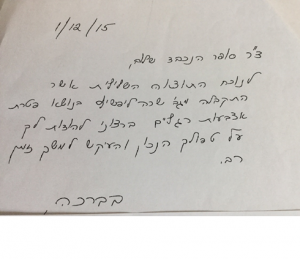 1/12/15
ד"ר סופר הנכבד שלום,
לנוכח התוצאה השלילית אשר
התקבלה מגב' שרה ליפשיץ בנושא פטרת
אצבעות רגליים ברצוני להודות לך
על טיפולך הנכון והעיקש למשך זמן
רב.
בברכה,